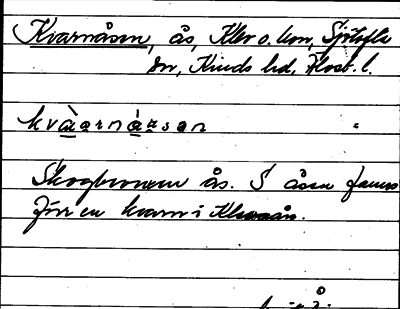 Kvarnåsen, ås, Klev o. hm, Sjötofta
sn, Kinds hd, Älvsb. l.
kvàarnàrsan
Skogbevuxen ås. I åsen fanns
förr en kvarn i Klevaån.